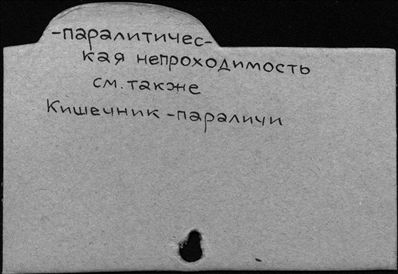 -паралитичес-
кая непроходимость
см. также
Кишечник - параличи